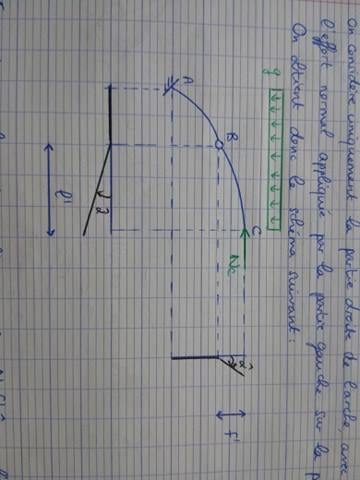 On considère uniquement la partie droite de l'arche, avec
l'effort normal appliquée par la partie gauche sur la p
On obtient donc le schéma suivant :
q
A
B
C
Nc
l'
f'